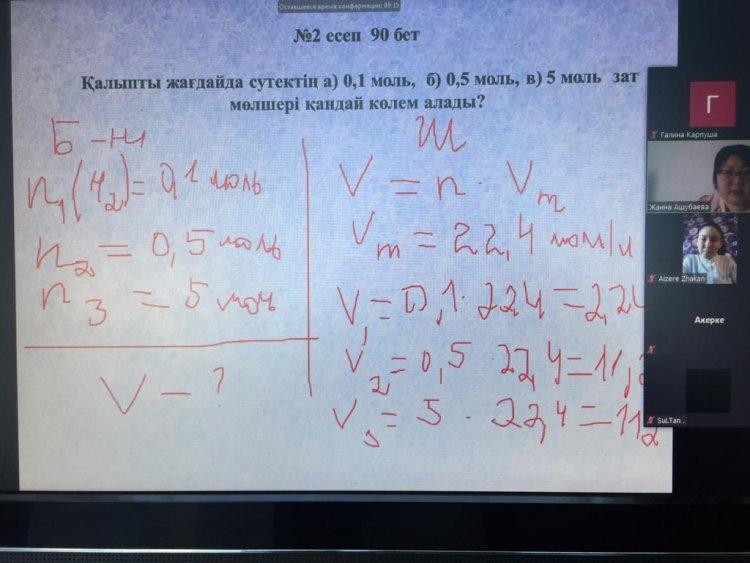 Оставшееся время конференции: 09:15
№2 есеп 90 бет
Қалыпты жағдайда сутектің а) 0,1 моль, б) 0,5 моль, в) 5 моль зат
мөлшері қандай көлем алады?
Б-ні
n₁(H₂)=0,1 моль
n₂ = 0,5 моль
n₃ = 5 моль
V - ?
Ш
V = n · Vm
Vm = 22,4 моль/л
V₁=0,1·22,4=2,24
V₂=0,5 22,4=11,2
V₃= 5 · 22,4=112
Г
Галина Карпуша
Жанна Ашубаева
Aizere Zhakan
Акерке
SuLTan .